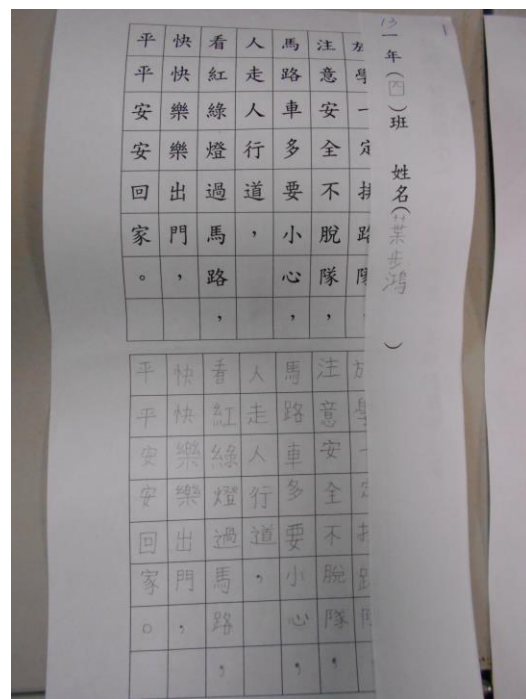 13
一年(四)班 姓名(葉步鴻)
放學一定排路隊,
注意安全不脫隊,
馬路車多要小心,
人走人行道,
看紅綠燈過馬路,
快快樂樂出門,
平平安安回家。
放學一定排路隊
注意安全不脫隊,
馬路車多要小心,
人走人行道,
看紅綠燈過馬路,
快快樂樂出門,
平平安安回家。